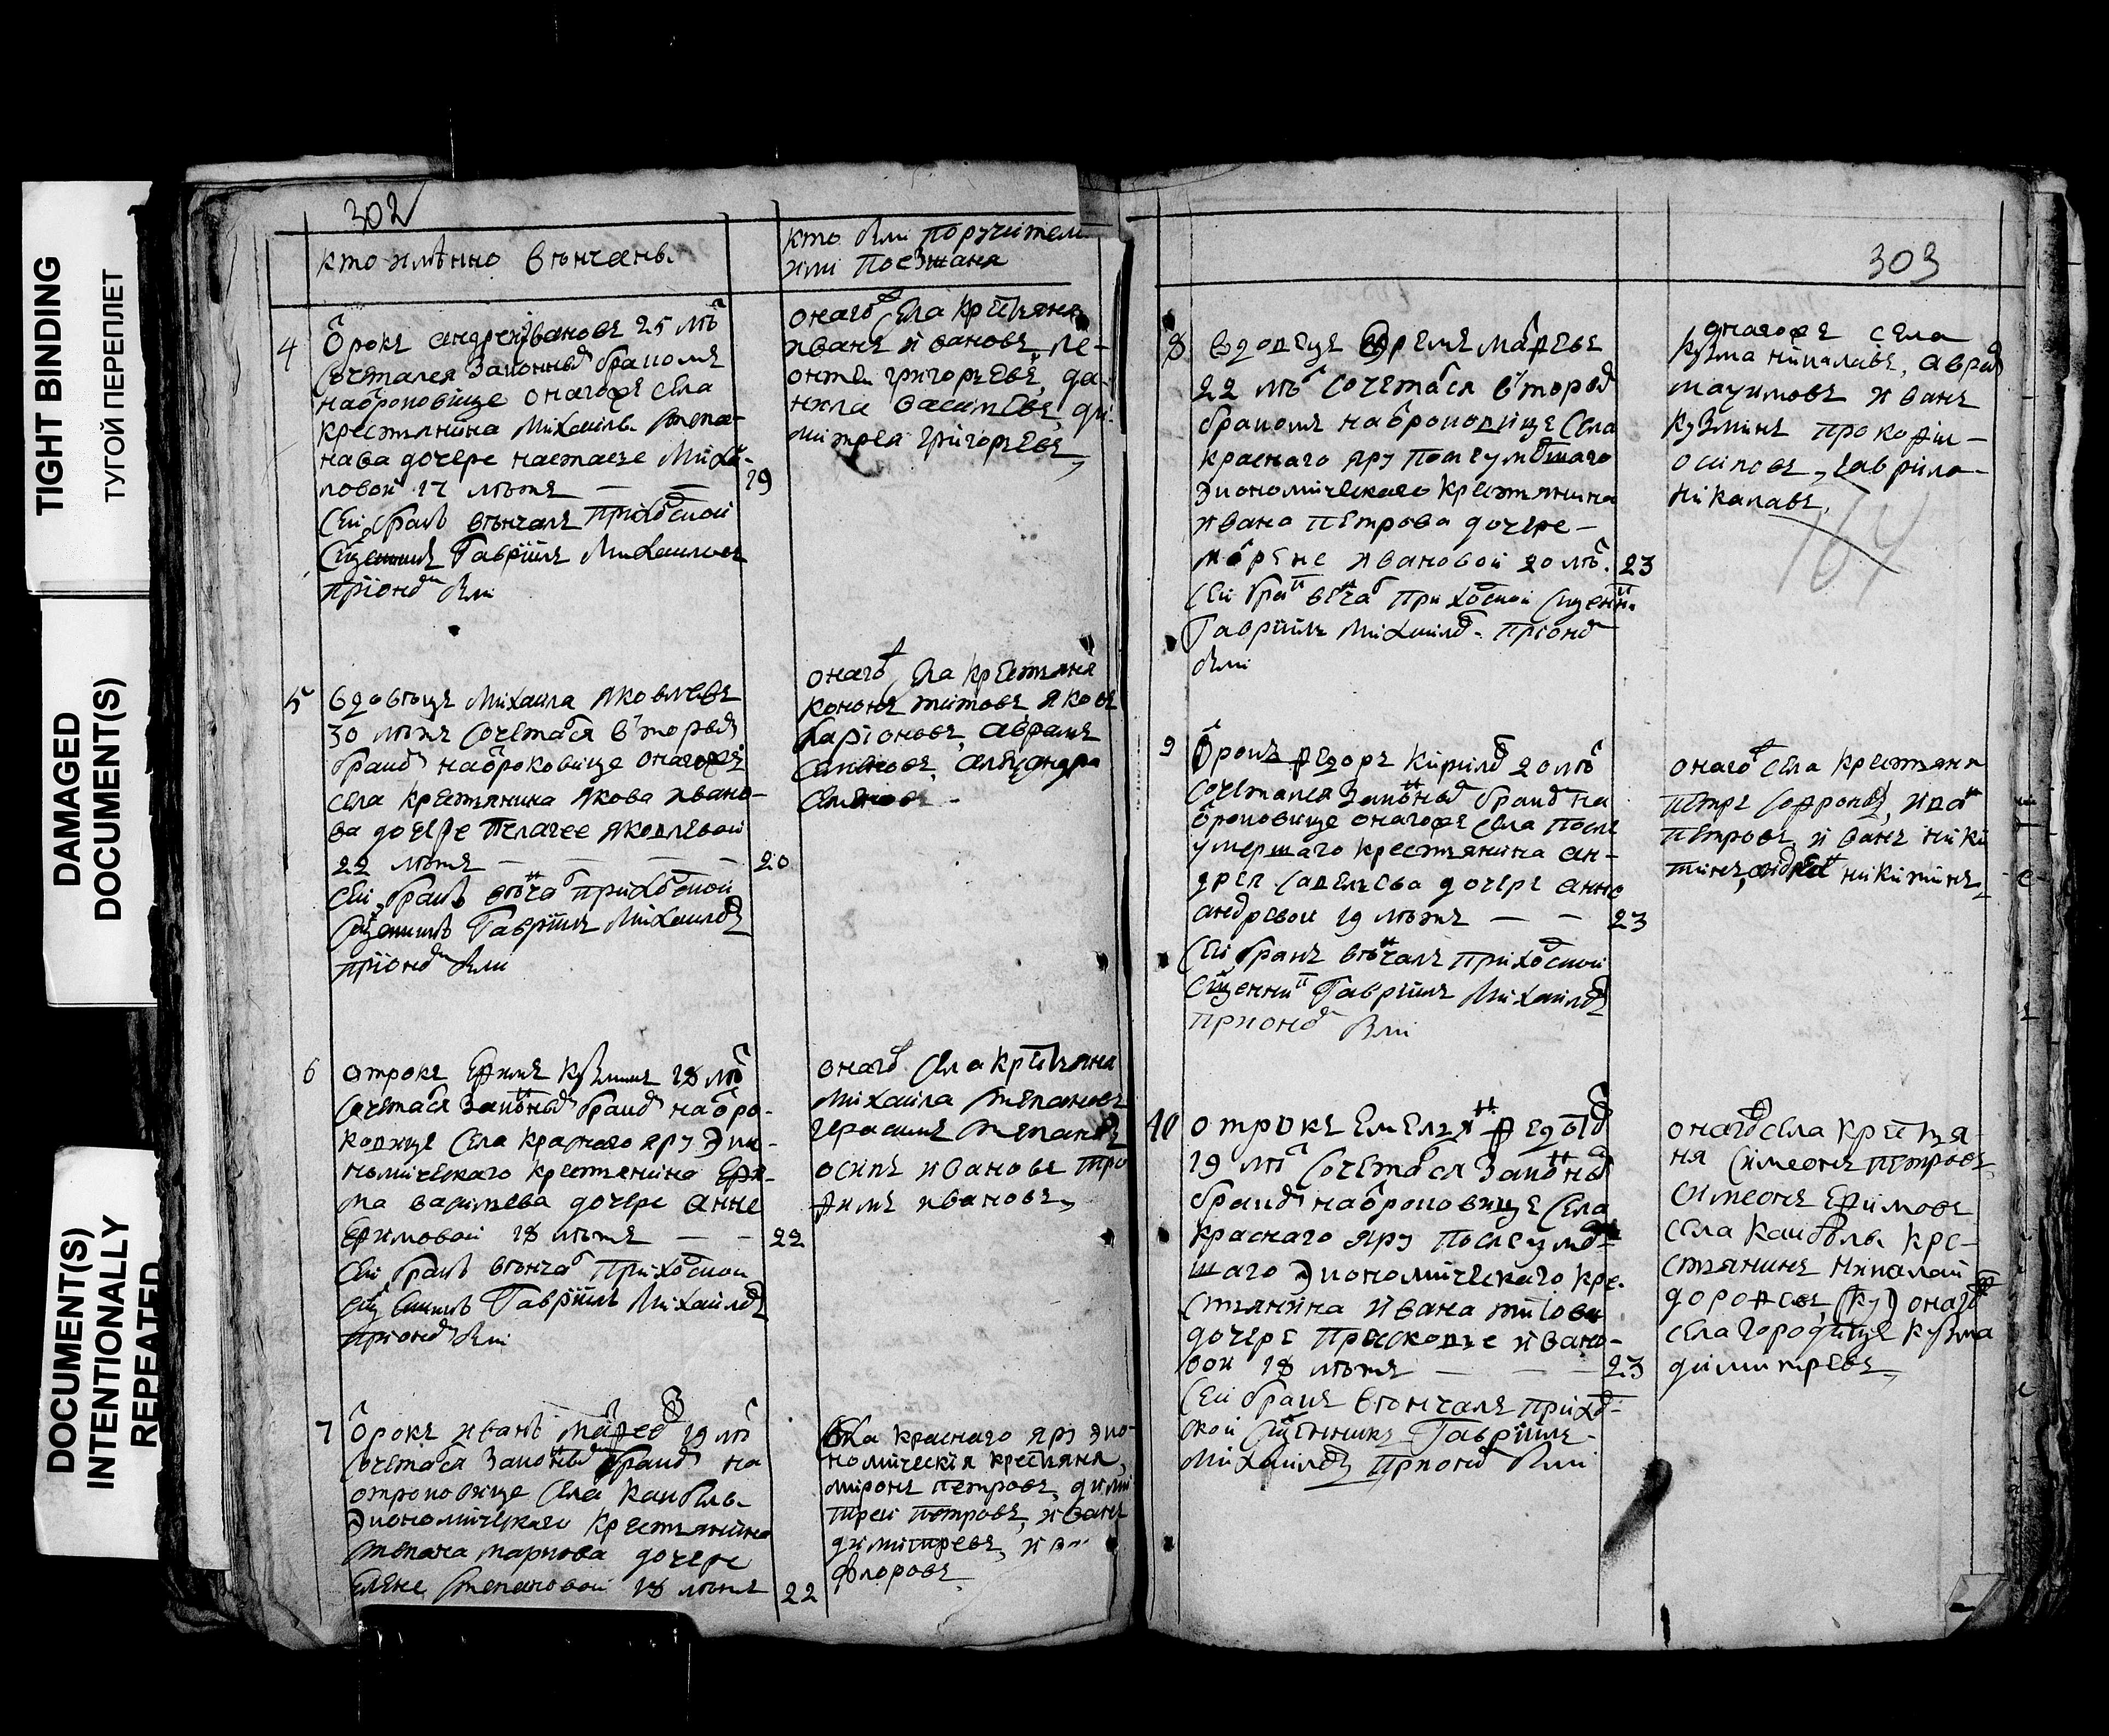 TIGHT BINDING
ТУГОЙ ПЕРЕПЛЕТ
DAMAGED
DOCUMENT(S)
DOCUMENT(S)
INTENTIONALLY
REPEATED
302
кто имѣнно вѣнчаны
кто были поручители
или поезжаня
4
Ѿрокъ андреи Ивановъ 25 лѣт
сочетался законым бракомъ
наѿроковице онагоже села
крестьянина Михаила степа-
нава дочере настасье Михаи-
ловой 17 лѣтъ — — 19
сей бракъ вѣнчалъ приходской
священикъ Гавріилъ Михаиловъ
при оном были
онаго села крестьяня
иванъ ивановъ, ле-
онтеи григорьевъ, да-
нила васильевъ, ди-
митреи григорьевъ
5
вдовѣцъ Михаила яковлевъ
30 лѣтъ сочетался вторым
браком наѿроковице онагоже
села крестьянина якова ивано-
ва дочере пелагее яковлевой
22 лѣтъ — — — — 20
сей бракъ вѣнчал приходской
священикъ Гавріилъ Михаилов
при оном были
онаго села крестьяня
кононъ титовъ яковъ
ларіоновъ, аврамъ
6
отрокъ ефимъ кузмин 18 лѣт
сочетался законым браком наѿро-
ковице села краснаго яру эко-
номическаго крестьянина ефи-
ма васильева дочере анне
ефимовой 18 лѣтъ — — 22
сей бракъ вѣнчал приходской
священикъ Гавріилъ Михаилов
при оном были
онаго села крестьяня
михаила степановъ
герасимъ степановъ
осипъ ивановъ тро-
фимъ ивановъ
7
Ѿрокъ иванъ матфеев 19 лѣт
сочетался законым браком на
отроковице села каиболы
экономическаго крестьянина
степана маркова дочере
елене степановой 18 лѣтъ 22
села краснаго яру эко-
номическія крестьяня,
миронъ петровъ, дими-
треи петровъ, иванъ
димитревъ,
флоровъ
303
8
вдовецъ матфевъ
22 лѣт сочетался вторым
бракомъ наѿроковице села
краснаго яру после умершаго
экономическаго крестьянина
ивана петрова дочере —
ивановой 20 лѣт. 23
сей брак вѣнчал приходской священник
Гавріилъ Михаилов. при оном
были
онагоже села
кузма николаевъ, аврам
иванъ
кузминъ прокофи —
осиповъ, гаврила
николаевъ
164
9
Ѿрокъ федоръ кирилов 20 лѣт
сочетался законым браком на
ѿроковице онагоже села после
умершаго крестьянина ан-
дрея савельева дочере анне
андревой 19 лѣтъ — — 23
сей бракъ вѣнчалъ приходской
священник Гавріилъ Михаилов
при оном были
онаго села крестьяня
петръ софронов, иван
петровъ, иванъ ники-
тинъ, андреи никитинъ
10
отрокъ емельян федотов
19 лѣт сочетался законым
браком наѿроковице села
краснаго яру после умер-
шаго экономическаго кре-
стьянина ивана титова
дочере прасковье ивано-
вой 18 лѣтъ — — 23
сей бракъ вѣнчалъ приход-
ской священникъ Гавріилъ
Михаилов при оном были
онаго села крестья-
ня симеонъ петровъ
симеонъ ефимовъ
села каиболы кре-
стьянинъ николаи
дорофеевъ онаго
села городище кузма
димитревъ